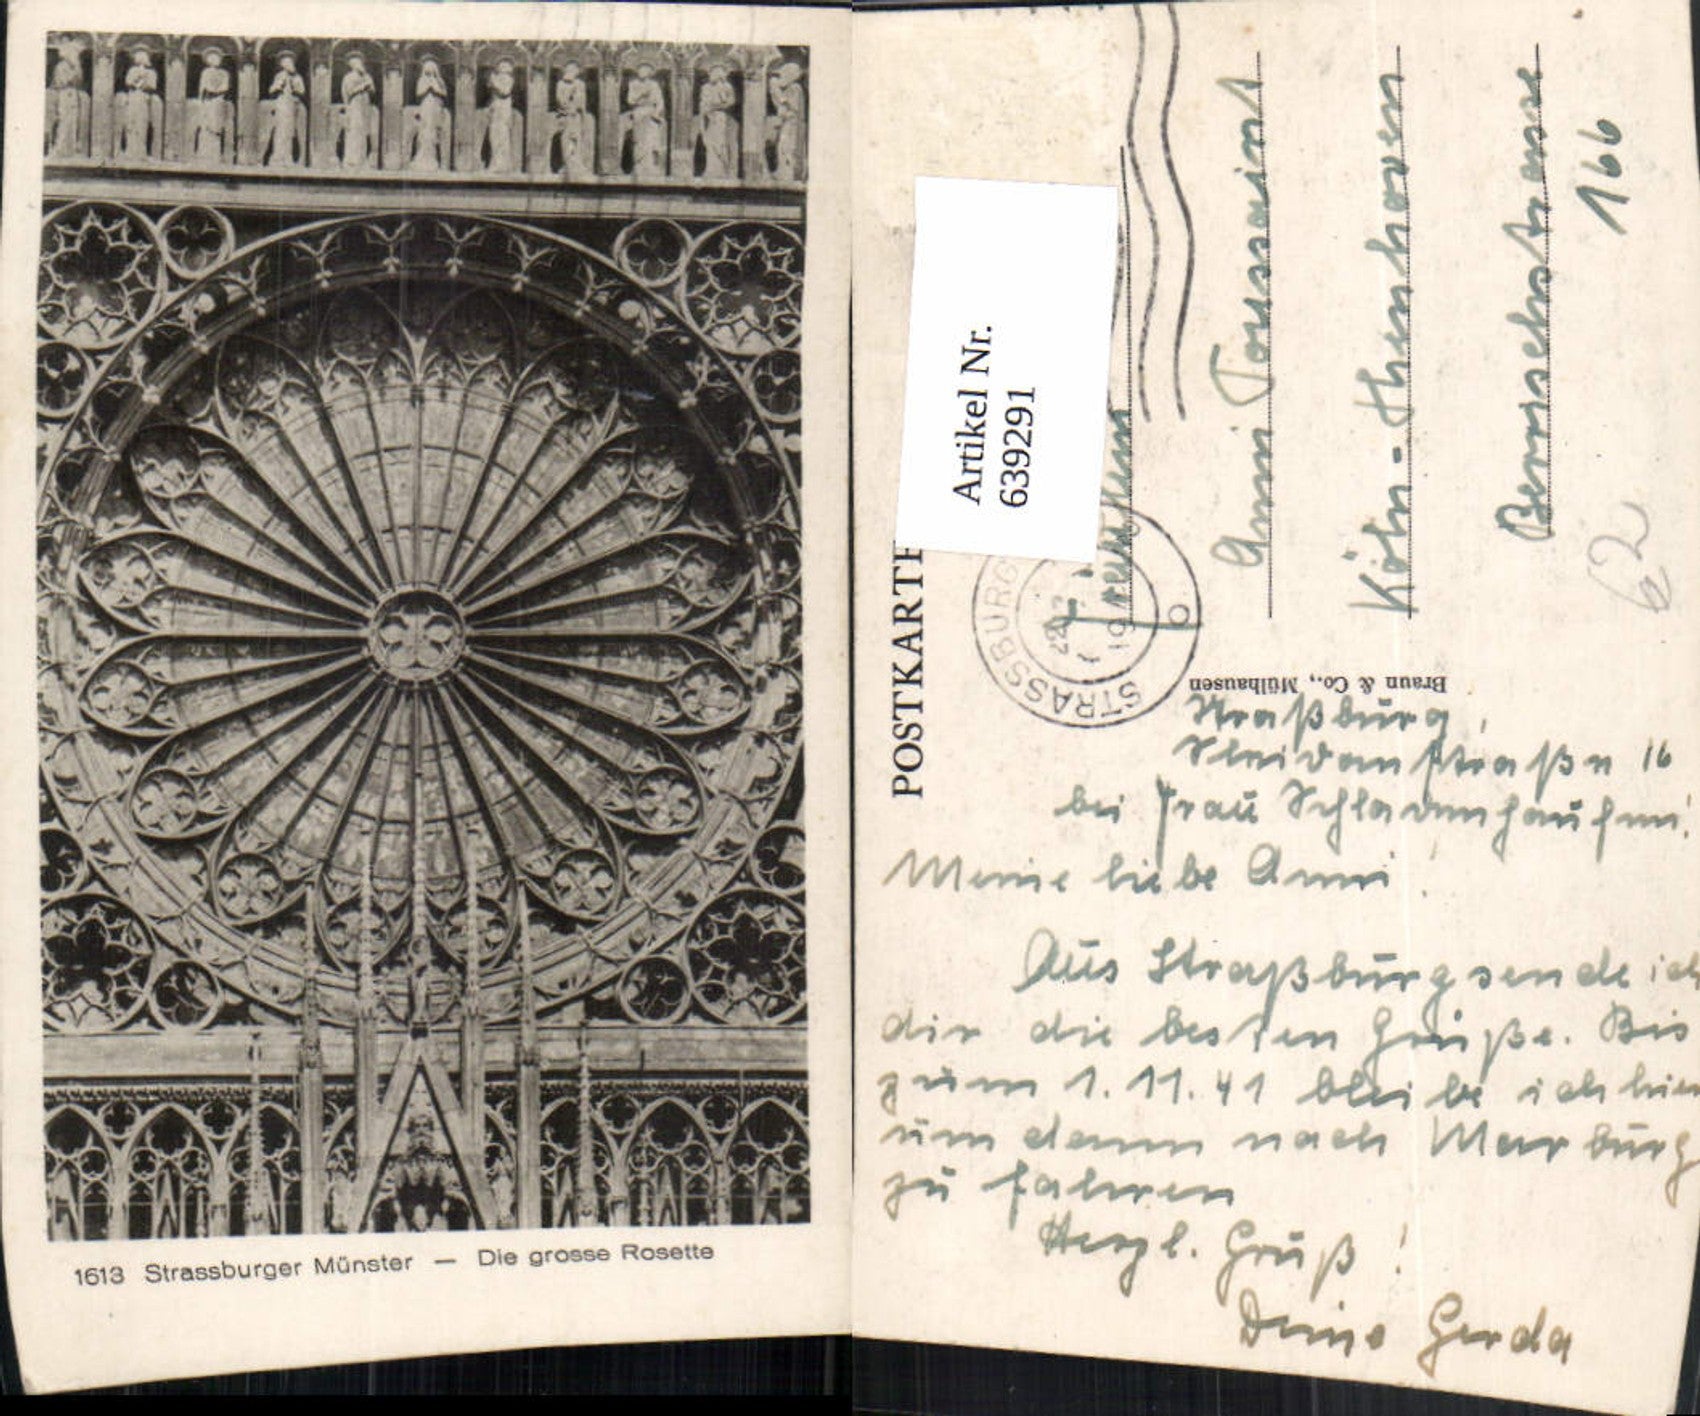 1613 Strassburger Münster — Die grosse Rosette
POSTKARTE
Artikel Nr.
639291
STRASSBURG
22
19
Anni Toussaint
Köln-
166
62
Braun & Co., Mülhausen
Straßburg,
16
bei Frau
Meine liebe Anni!
Aus Straßburg sende ich
dir die besten Grüße. Bis
zum 1.11.41 bleibe ich hier
um dann nach Marburg
zu fahren
Herzl. Gruß!
Deine Gerda